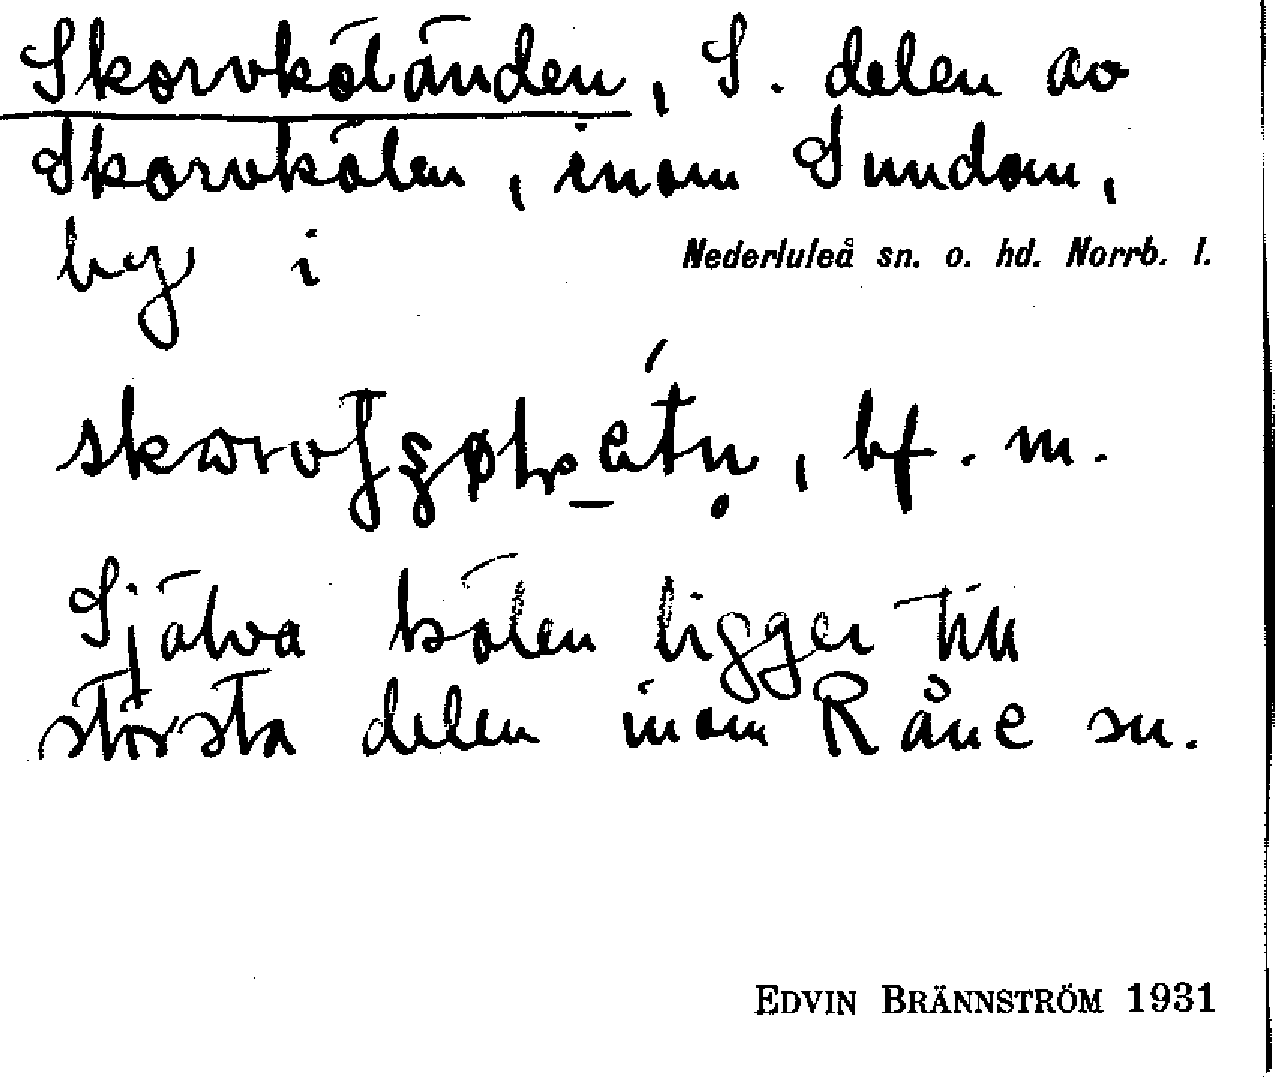 Skorvköländen, S. delen av
Skorvkölen, inom Sundom,
by i Nederluleå sn. o. hd. Norrb. l.
bf. m.
Själva kölen ligger till
största delen inom Råne sn.
EDVIN BRÄNNSTRÖM 1931